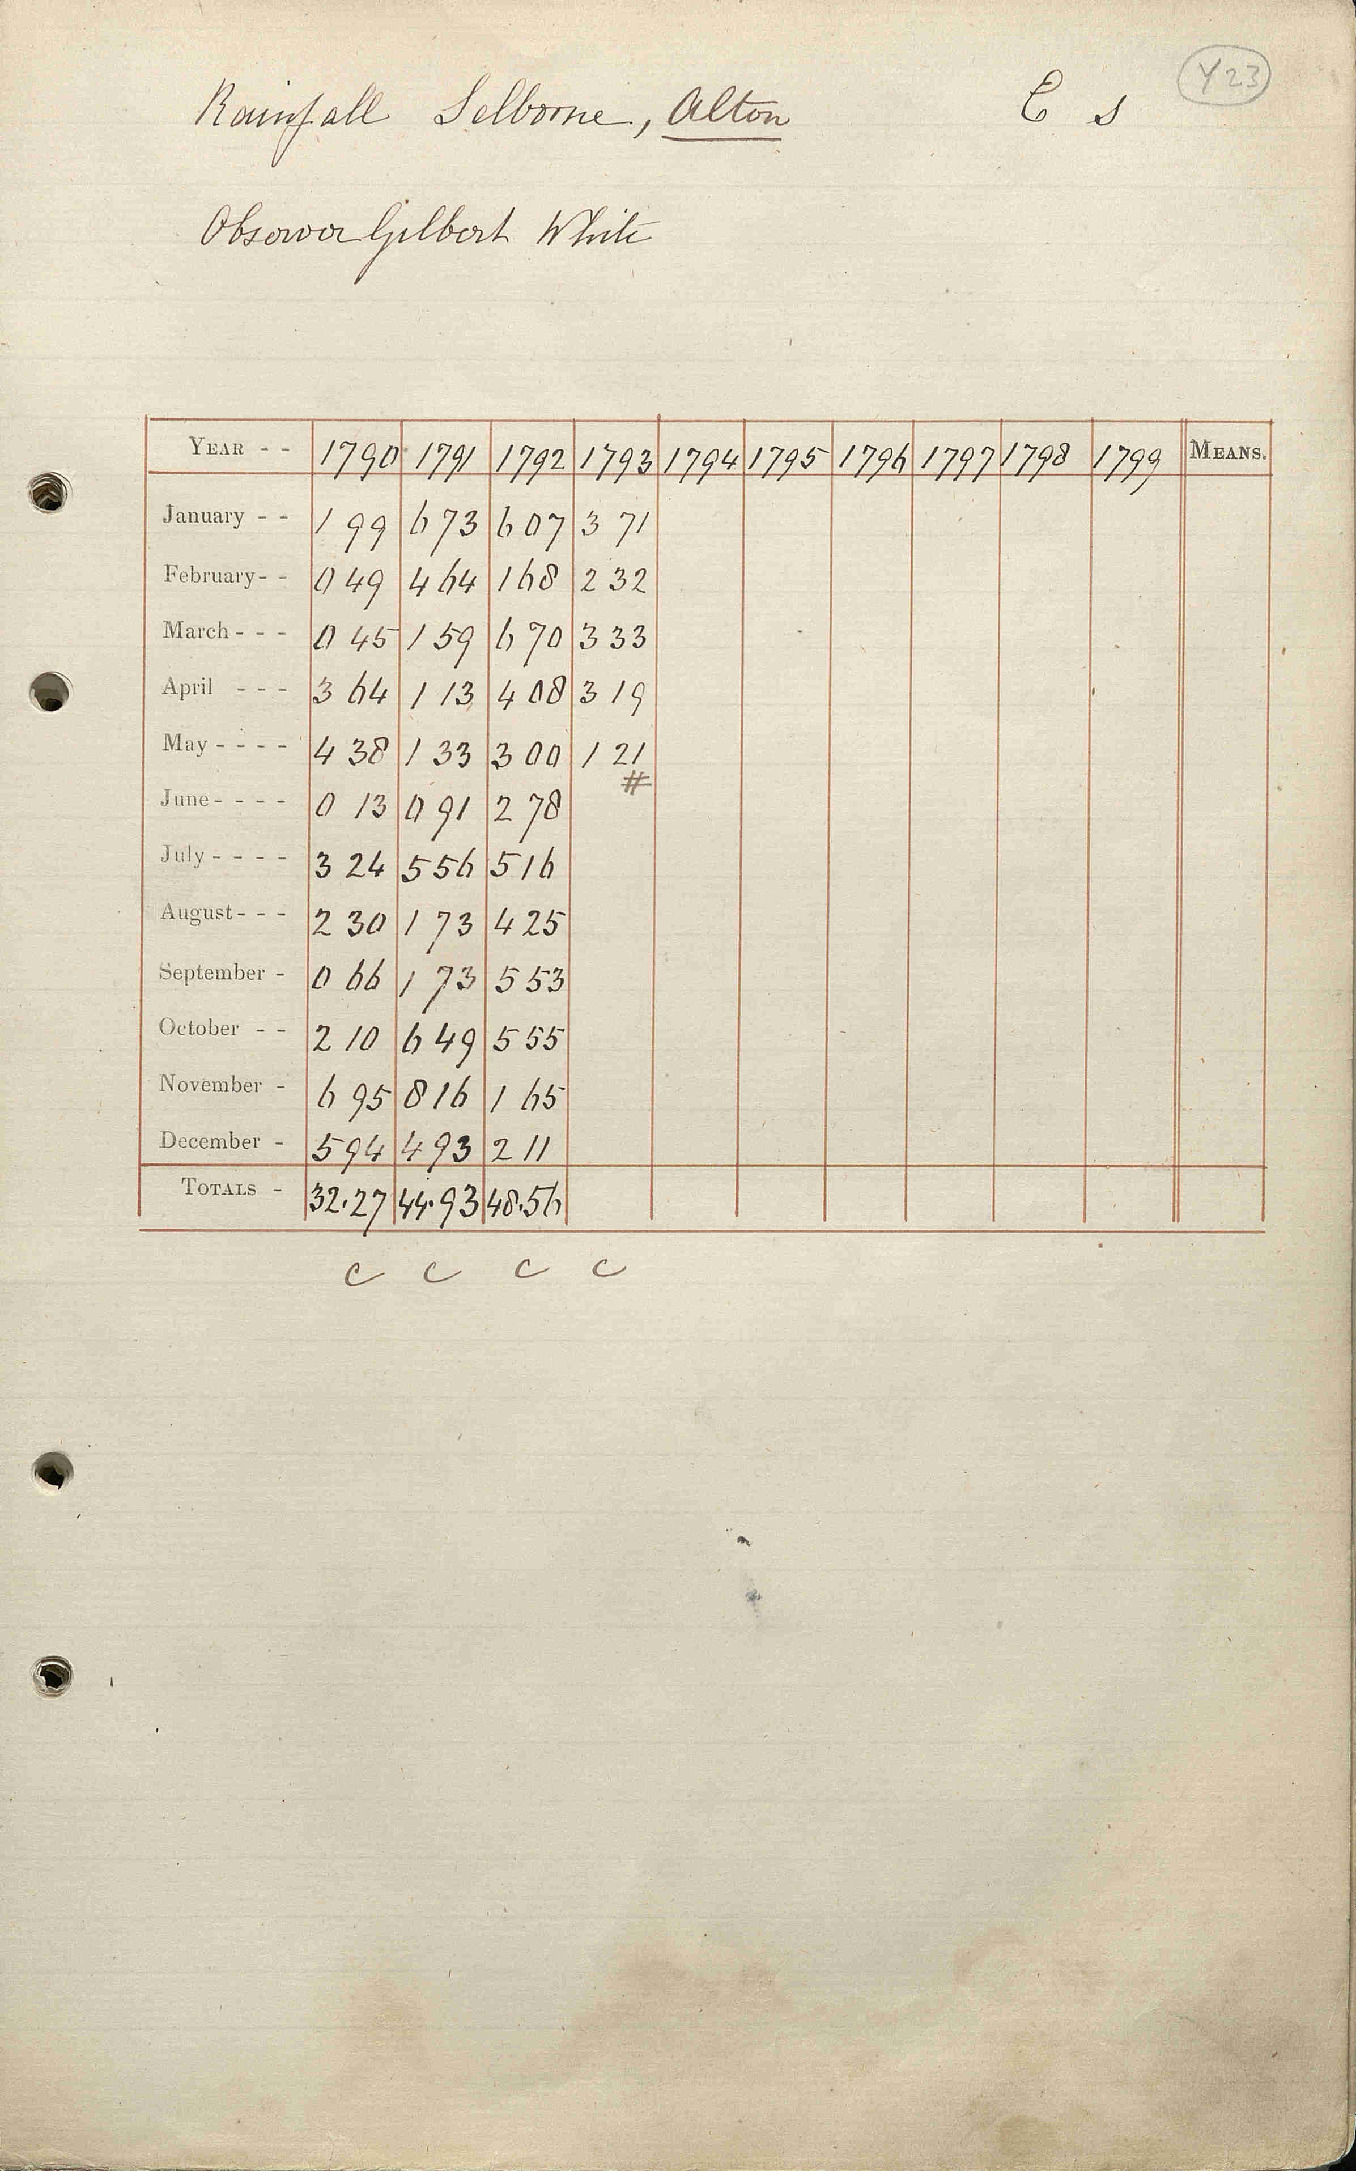 Y23
Rainfall Selborne, Alton E s
Observer Gilbert White
YEAR - - 1790 1791 1792 1793 1794 1795 1796 1797 1798 1799 MEANS.
January - - 1 99 6 73 6 07 3 71
February - - 0 49 4 64 1 68 2 32
March - - - 0 45 1 59 6 70 3 33
April - - - 3 64 1 13 4 08 3 19
May - - - - 4 38 1 33 3 00 1 21
#
June - - - - 0 13 0 91 2 78
July - - - - 3 24 5 56 5 16
August - - - 2 30 1 73 4 25
September - 0 66 1 73 5 53
October - - 2 10 6 49 5 55
November - 6 95 8 16 1 65
December - 5 94 4 93 2 11
TOTALS - 32.27 44.93 48.56
c c c c